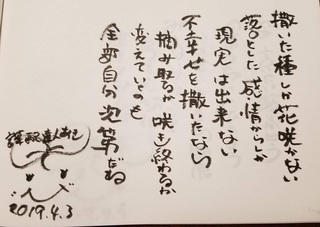 撒いた種しか花咲かない
落とした感情からしか
現実は出来ない
不幸せを撒いたなら
摘み取るか 咲き終わるか
変えていくのも
全部自分次第だね
2019.4.3